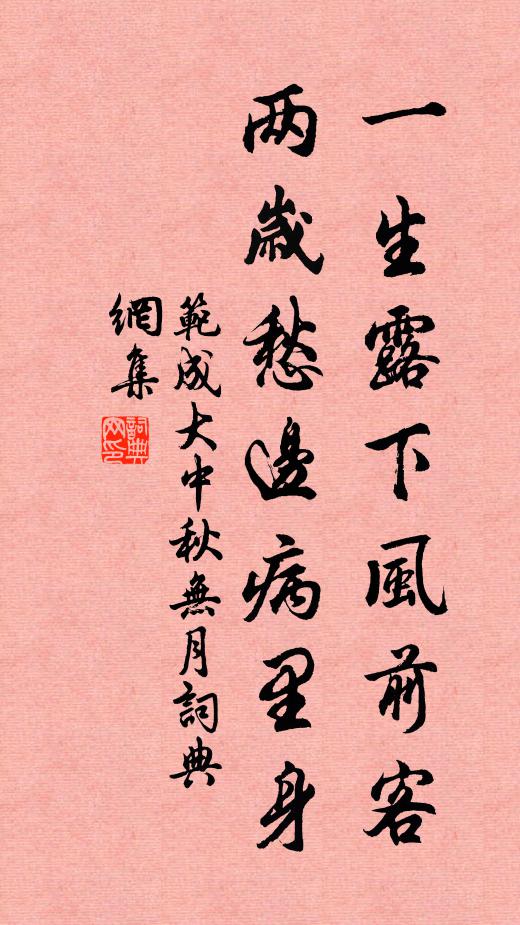 一生露下風前客
两歲愁邊病里身
範成大中秋無月詞典
網集
詞典
网印